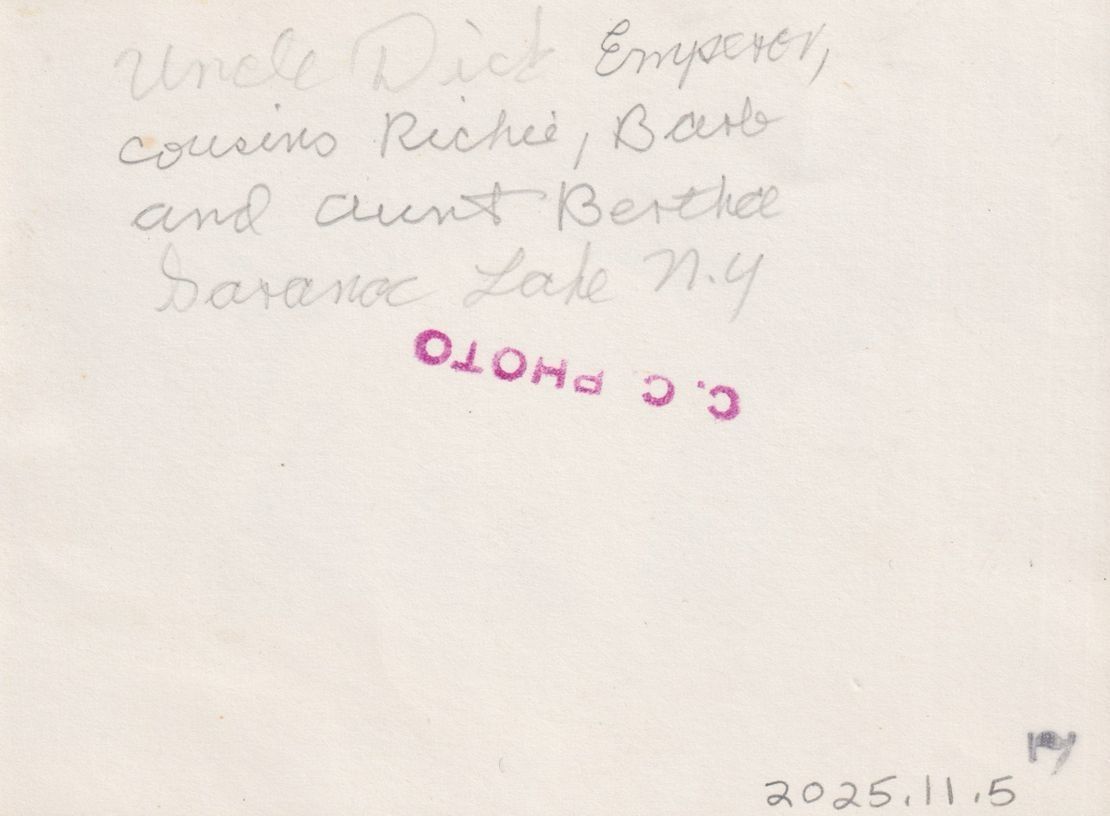 Uncle Dick Emperor,
cousins Richie, Barb
and aunt Bertha
Saranac Lake N.Y
C.C PHOTO
2025.11.5